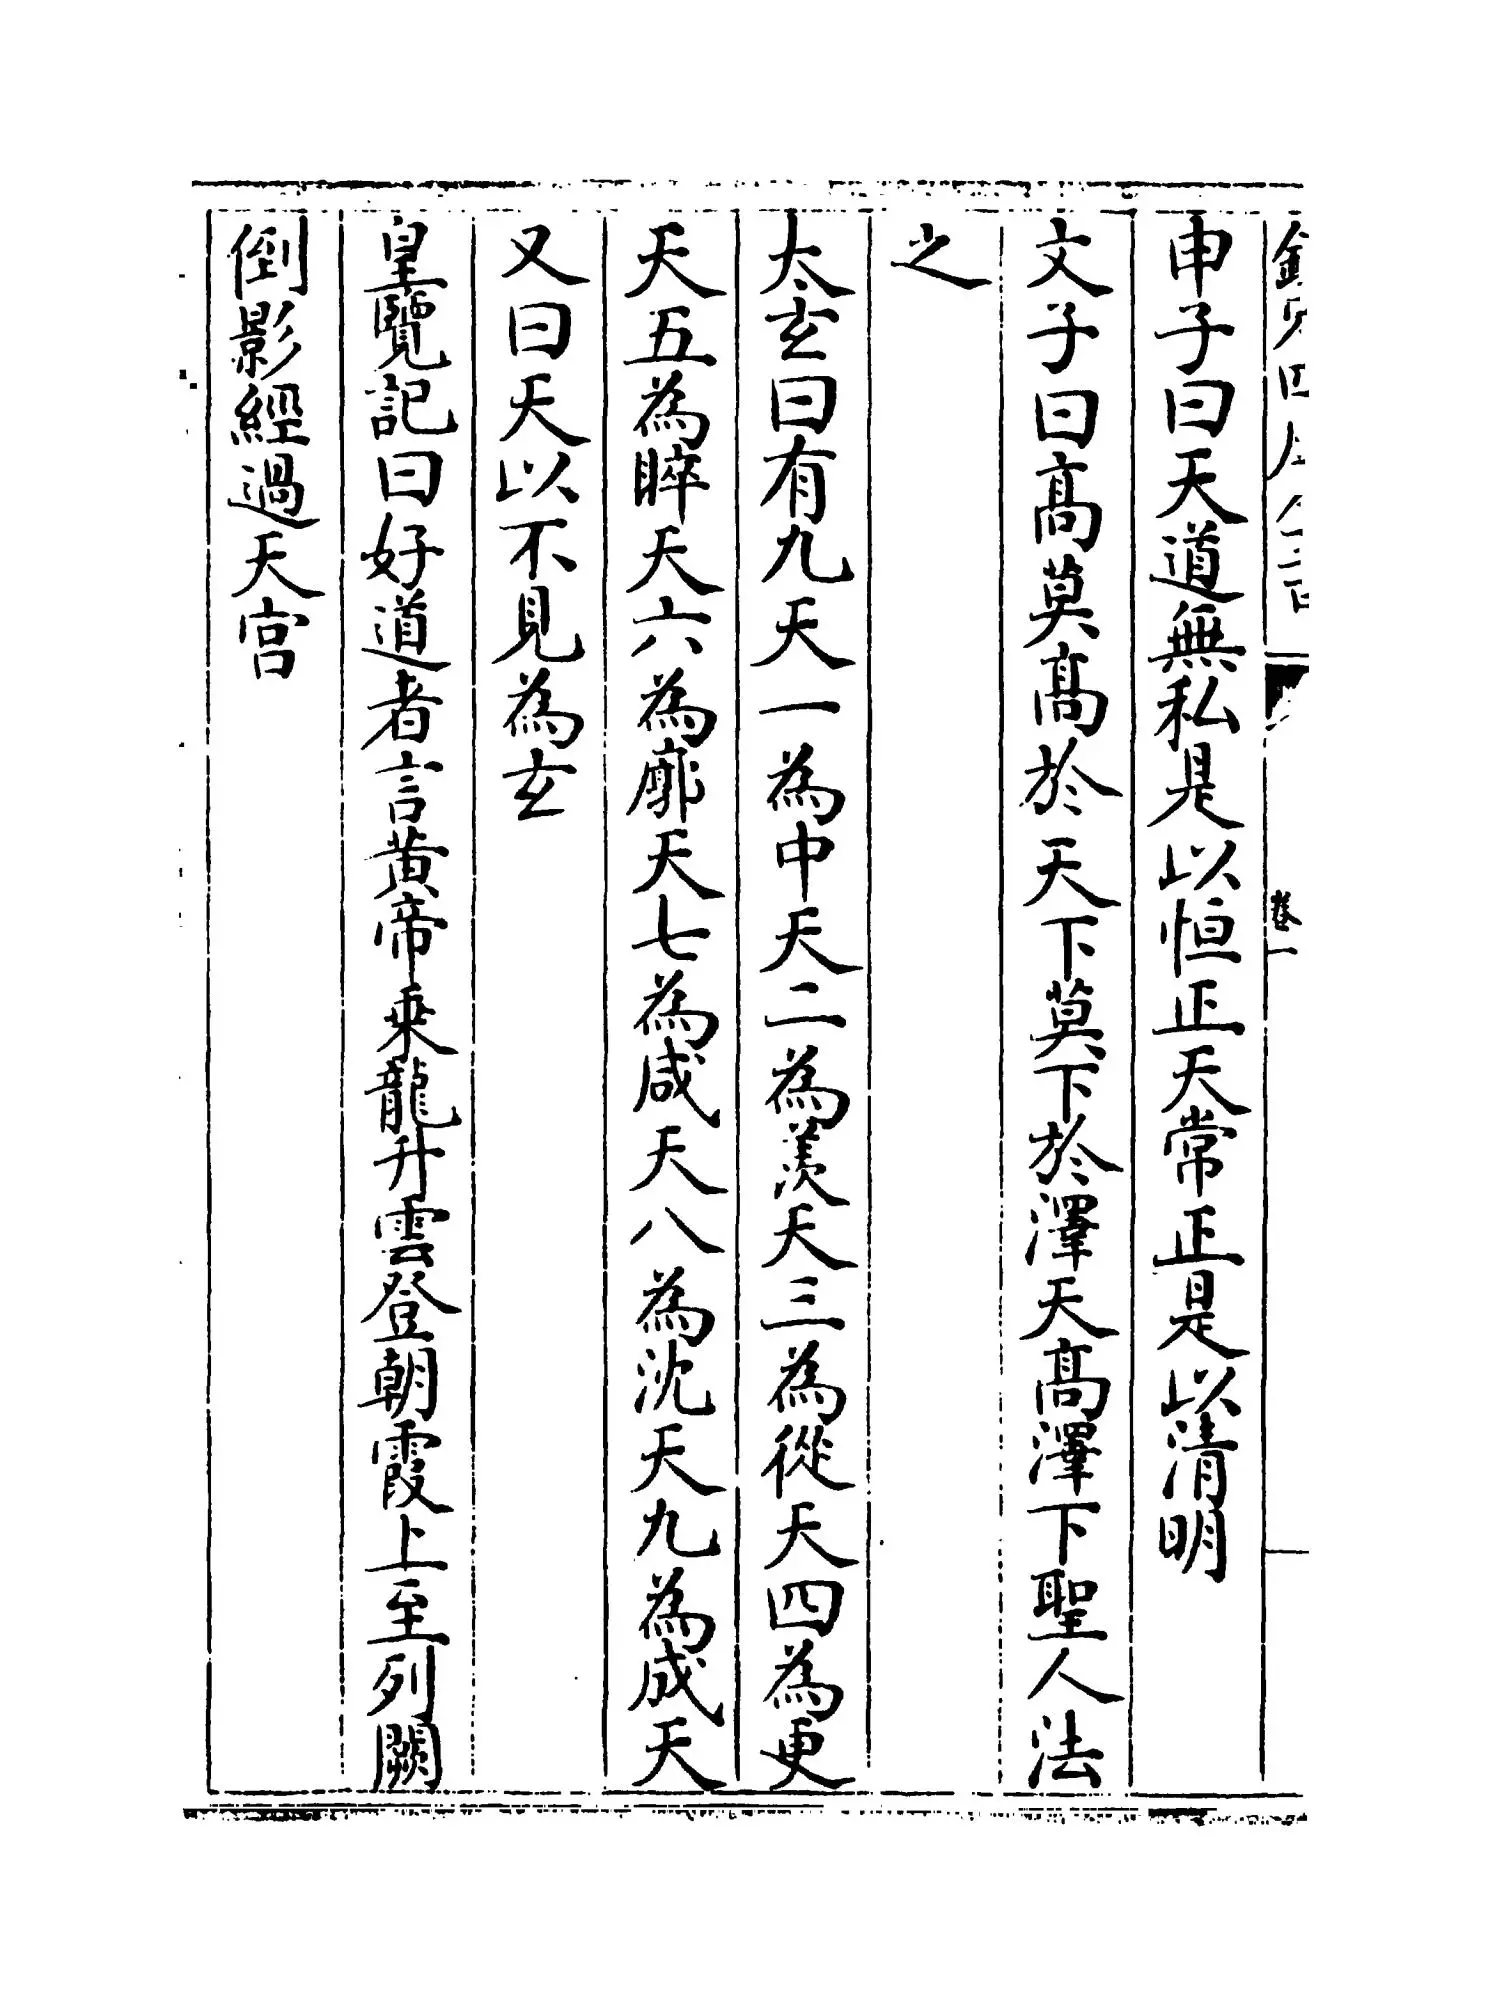 申子曰天道無私是以恒正天常正是以清明
文子曰髙莫髙於天下莫下於澤天髙澤下聖人法
之
太玄曰有九天一為中天二為羡天三為從天四為更
天五為睟天六為廓天七為咸天八為沈天九為成天
又曰天以不見為玄
皇覽記曰好道者言黄帝乘龍升雲登朝霞上至列闕
倒影經過天宫
卷一